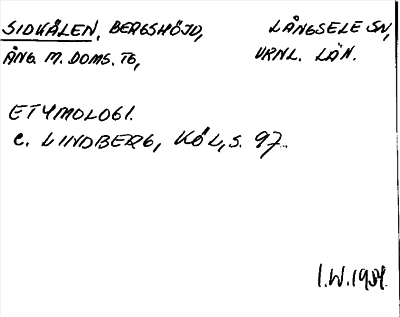 SIDKÄLEN, BERGSHÖJD, LÅNGSELE SN,
ÅNG. M. DOMS. TG, VRNL. LÄN.
ETYMOLOGI.
C. LINDBERG, KÖL, S. 97.
I.W. 1984.